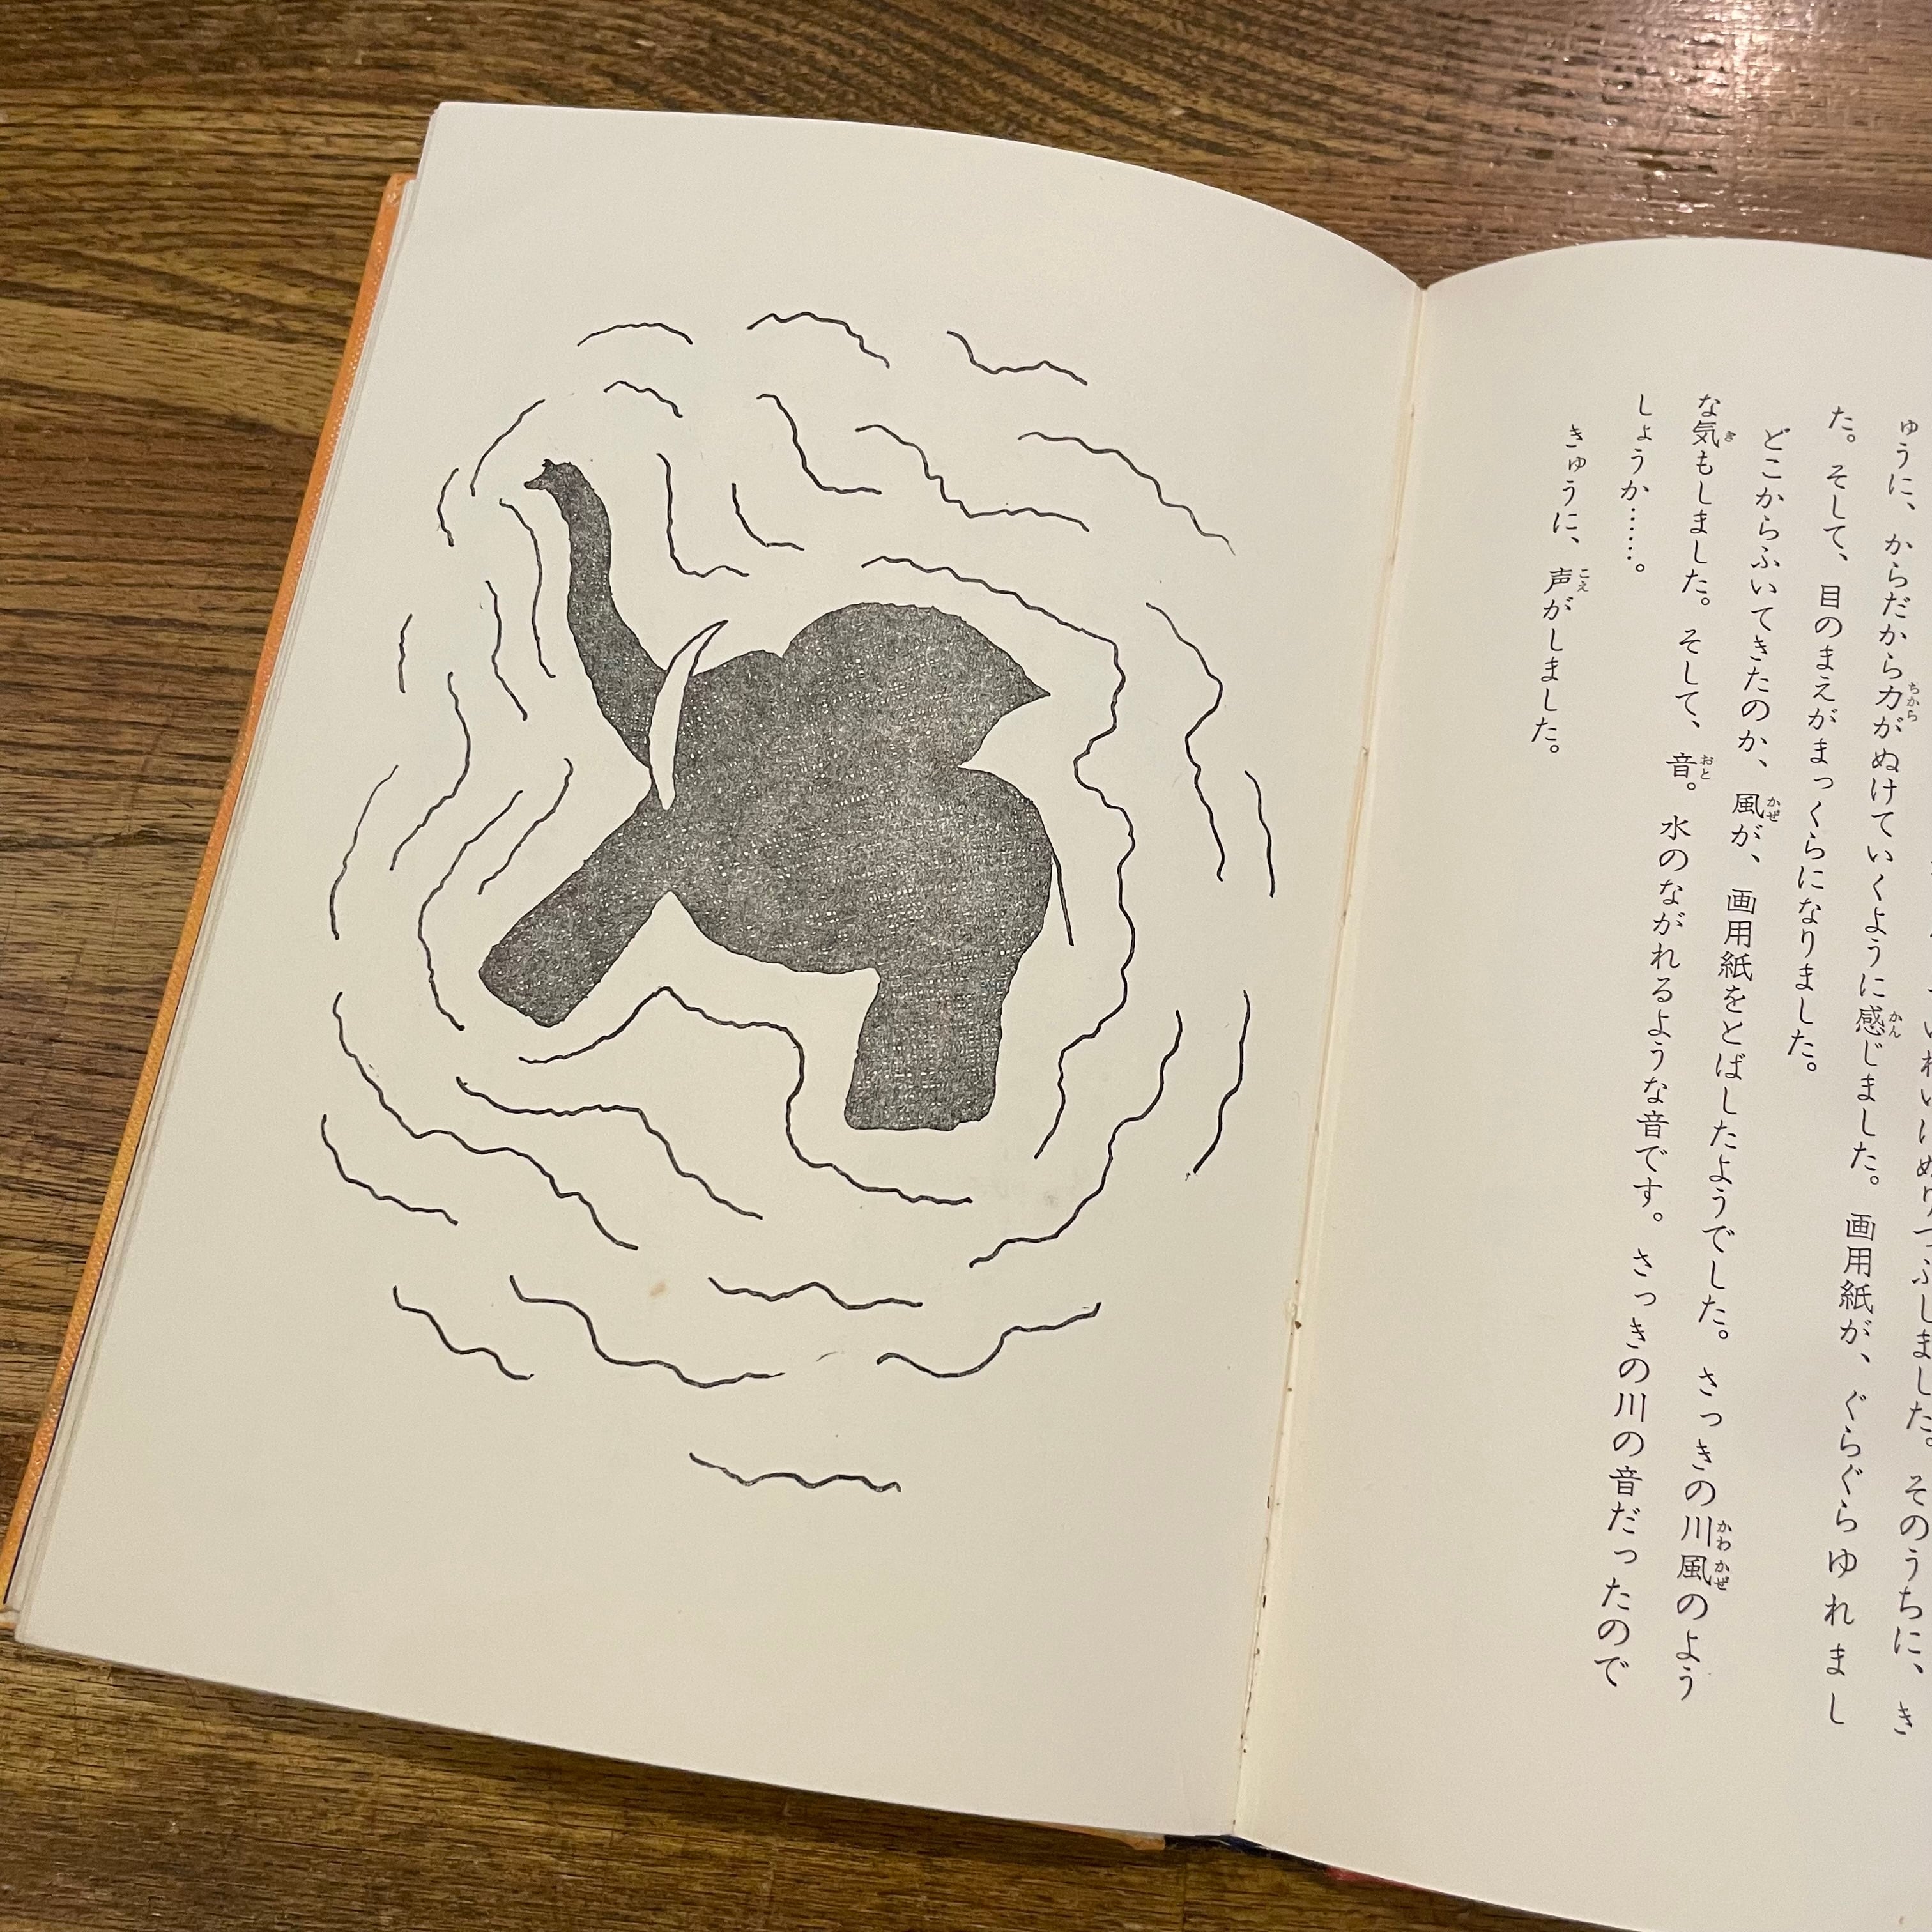 いにぬりつぶしました。そのうちに、き
ゅうに、からだから力がぬけていくように感じました。画用紙が、ぐらぐらゆれまし
た。そして、目のまえがまっくらになりました。
どこからふいてきたのか、風が、画用紙をとばしたようでした。さっきの川風のよう
な気もしました。そして、音。水のながれるような音です。さっきの川の音だったので
しょうか……。
きゅうに、声がしました。